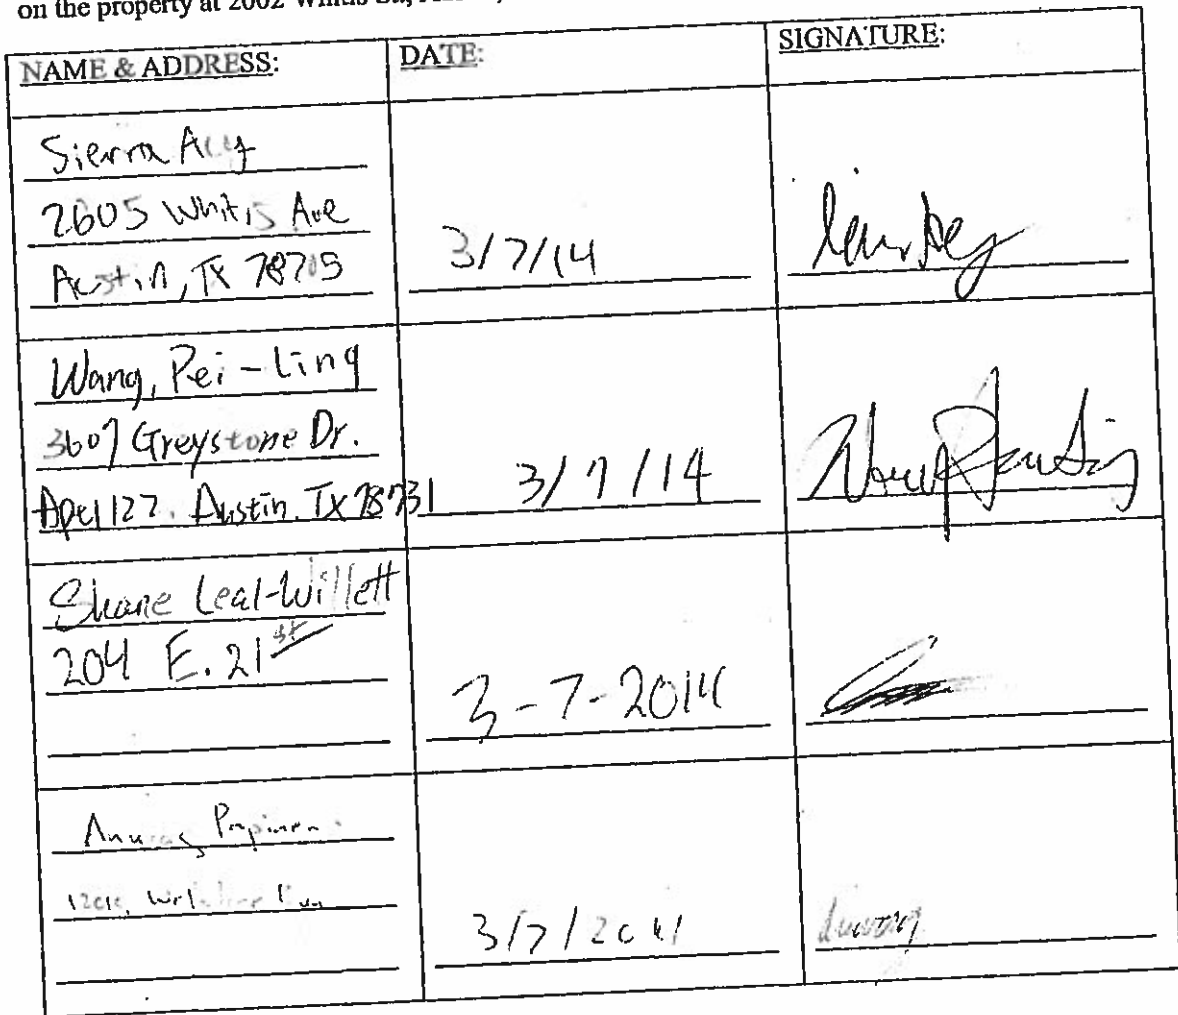 on the property at 2002 Whitis
NAME & ADDRESS: DATE: SIGNATURE:
Sierra
2605 Whitis Ave
Austin, TX 78705
3/7/14
Wang, Pei-Ling
3607 Greystone Dr.
Austin, TX 78731
3/7/14
Shane Leal-Willett
204 E. 21st
3-7-2014
Anurag
3/7/2014
Anurag